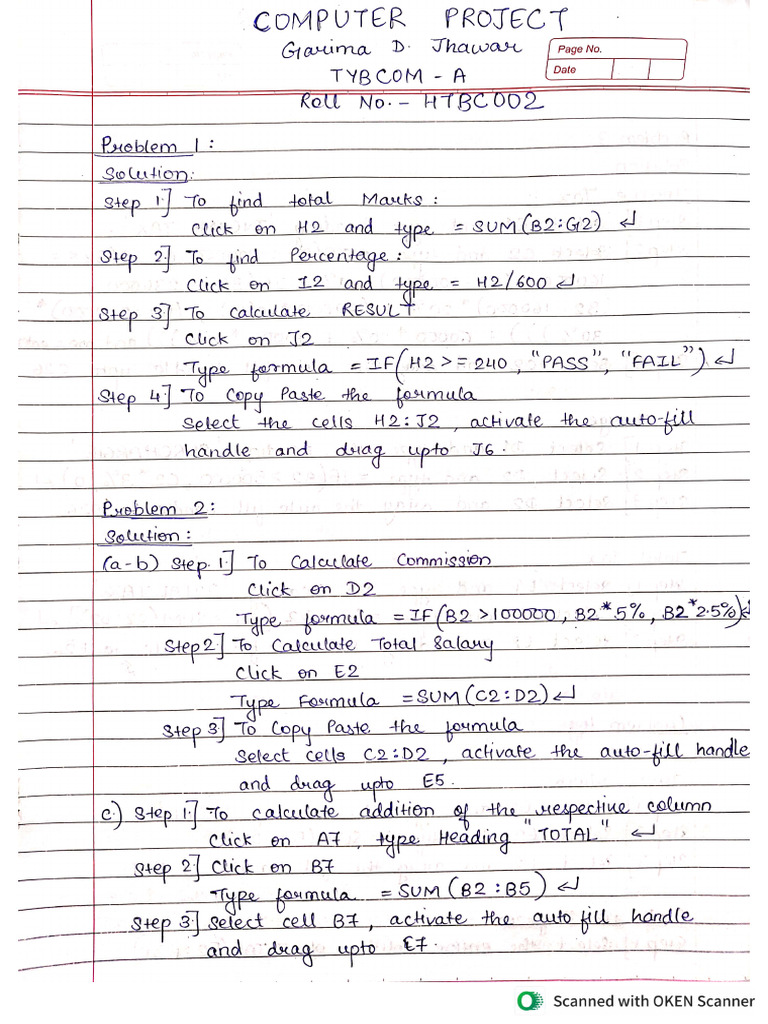 COMPUTER PROJECT
Garima D. Jhawar
Page No.
Date
TYBCOM - A
Roll No.- HTBC002
Problem 1:
Solution:
Step 1.] To find total Marks:
Click on H2 and type = SUM(B2:G2) ↵
Step 2.] To find Percentage:
Click on I2 and type = H2/600 ↵
Step 3] To calculate RESULT
Click on J2
Type formula =IF(H2>=240, "PASS", "FAIL") ↵
Step 4.] To Copy Paste the formula
Select the cells H2:J2, activate the auto-fill
handle and drag upto J6.
Problem 2:
Solution:
(a-b) Step.1.] To Calculate Commission
Click on D2
Type formula =IF(B2>100000, B2*5%, B2*2.5%)↵
Step2.] To Calculate Total Salary
Click on E2
Type Formula =SUM(C2:D2)↵
Step 3] To Copy Paste the formula
Select cells C2:D2, activate the auto-fill handle
and drag upto E5.
c.) Step 1.] To calculate addition of the respective column
Click on A7, type Heading "TOTAL" ↵
Step 2.] Click on B7
Type formula =SUM(B2:B5) ↵
Step 3.] Select cell B7, activate the auto fill handle
and drag upto E7.
Scanned with OKEN Scanner